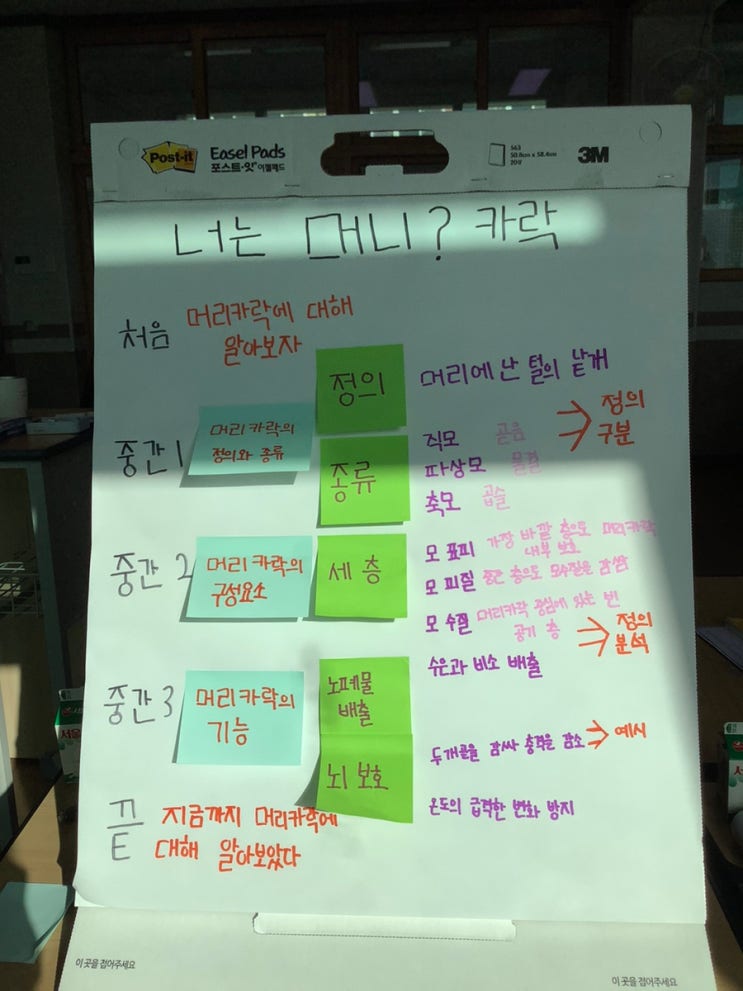 Post-it
Easel Pads
포스트-잇 이젤패드
563
50.8cm x 58.4cm
20장
3M
너는 머니? 카락
처음 머리카락에 대해
알아보자
정의 머리에 난 털의 낱개
중간 1 머리카락의
정의와 종류
종류
직모 곧음
파상모 물결
축모 곱슬
정의
구분
중간 2 머리카락의
구성요소
세 층
모 표피 가장 바깥 층으로 머리카락
내부 보호
모 피질 중간 층으로 모수질을 감쌈
모 수질 머리카락 중심에 있는 빈
공기 층
정의
분석
중간 3 머리카락의
기능
노폐물
배출
수은과 비소 배출
뇌 보호
두개골을 감싸 충격을 감소
예시
온도의 급격한 변화 방지
끝 지금까지 머리카락에
대해 알아보았다
이 곳을 접어주세요
이 곳을 접어주세요